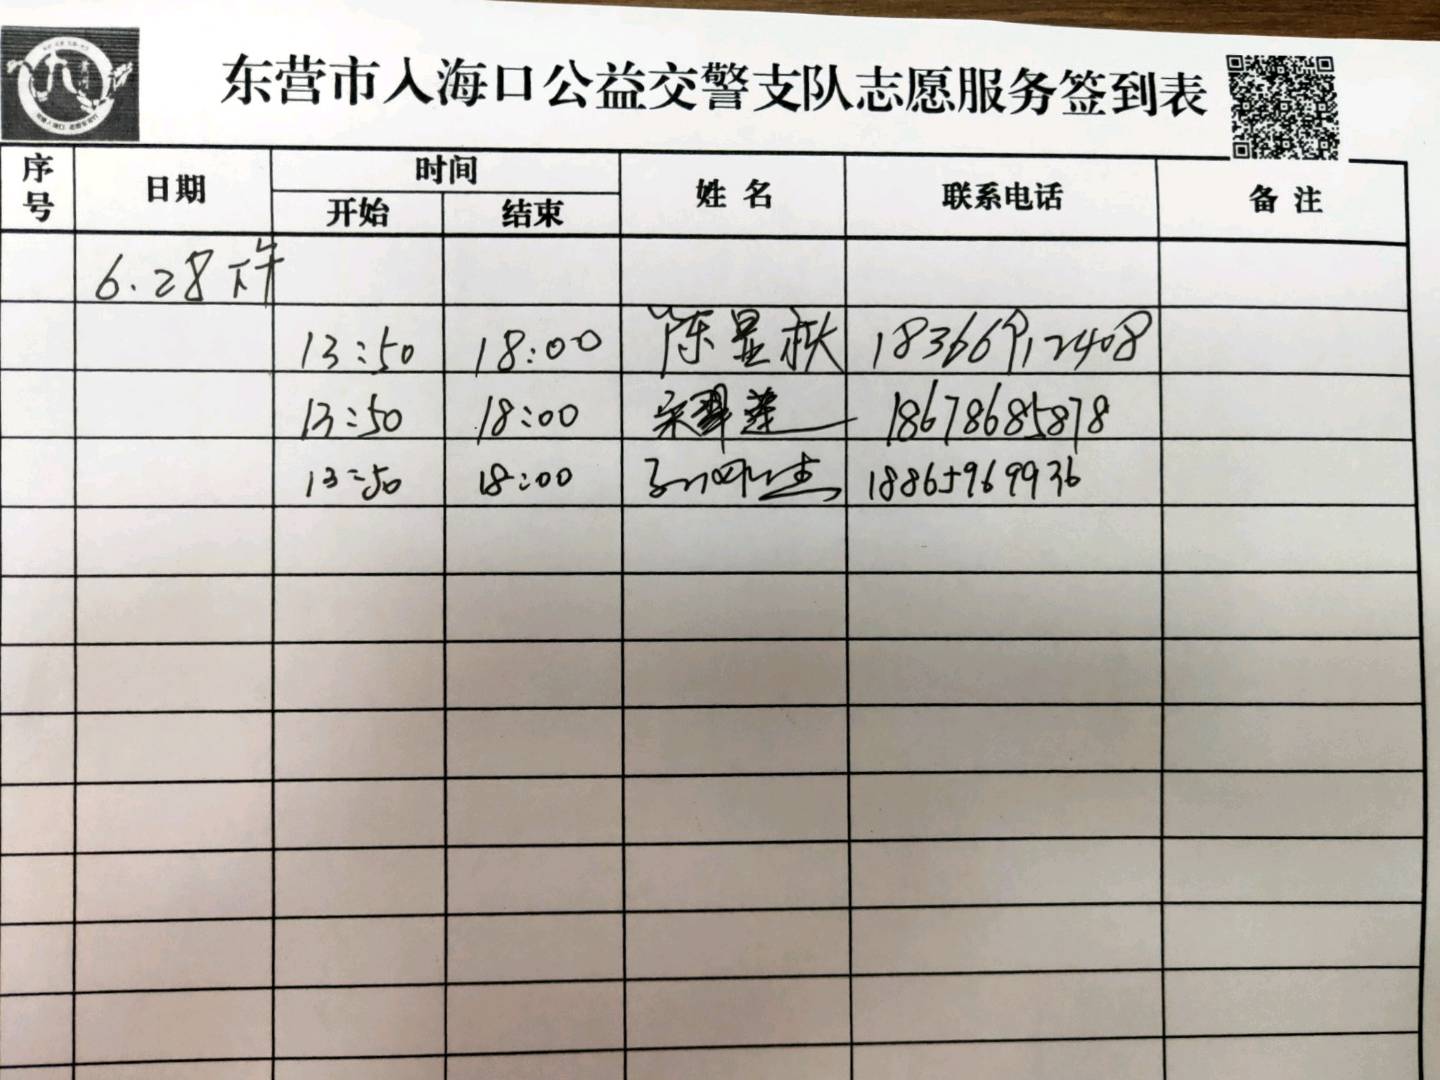 东营市入海口公益交警支队志愿服务签到表
序号 日期 时间 姓名 联系电话 备注
开始 结束
6.28下午
13:50 18:00 陈显秋
13:50 18:00 宋翠莲 18678685878
13:50 18:00 18865969936